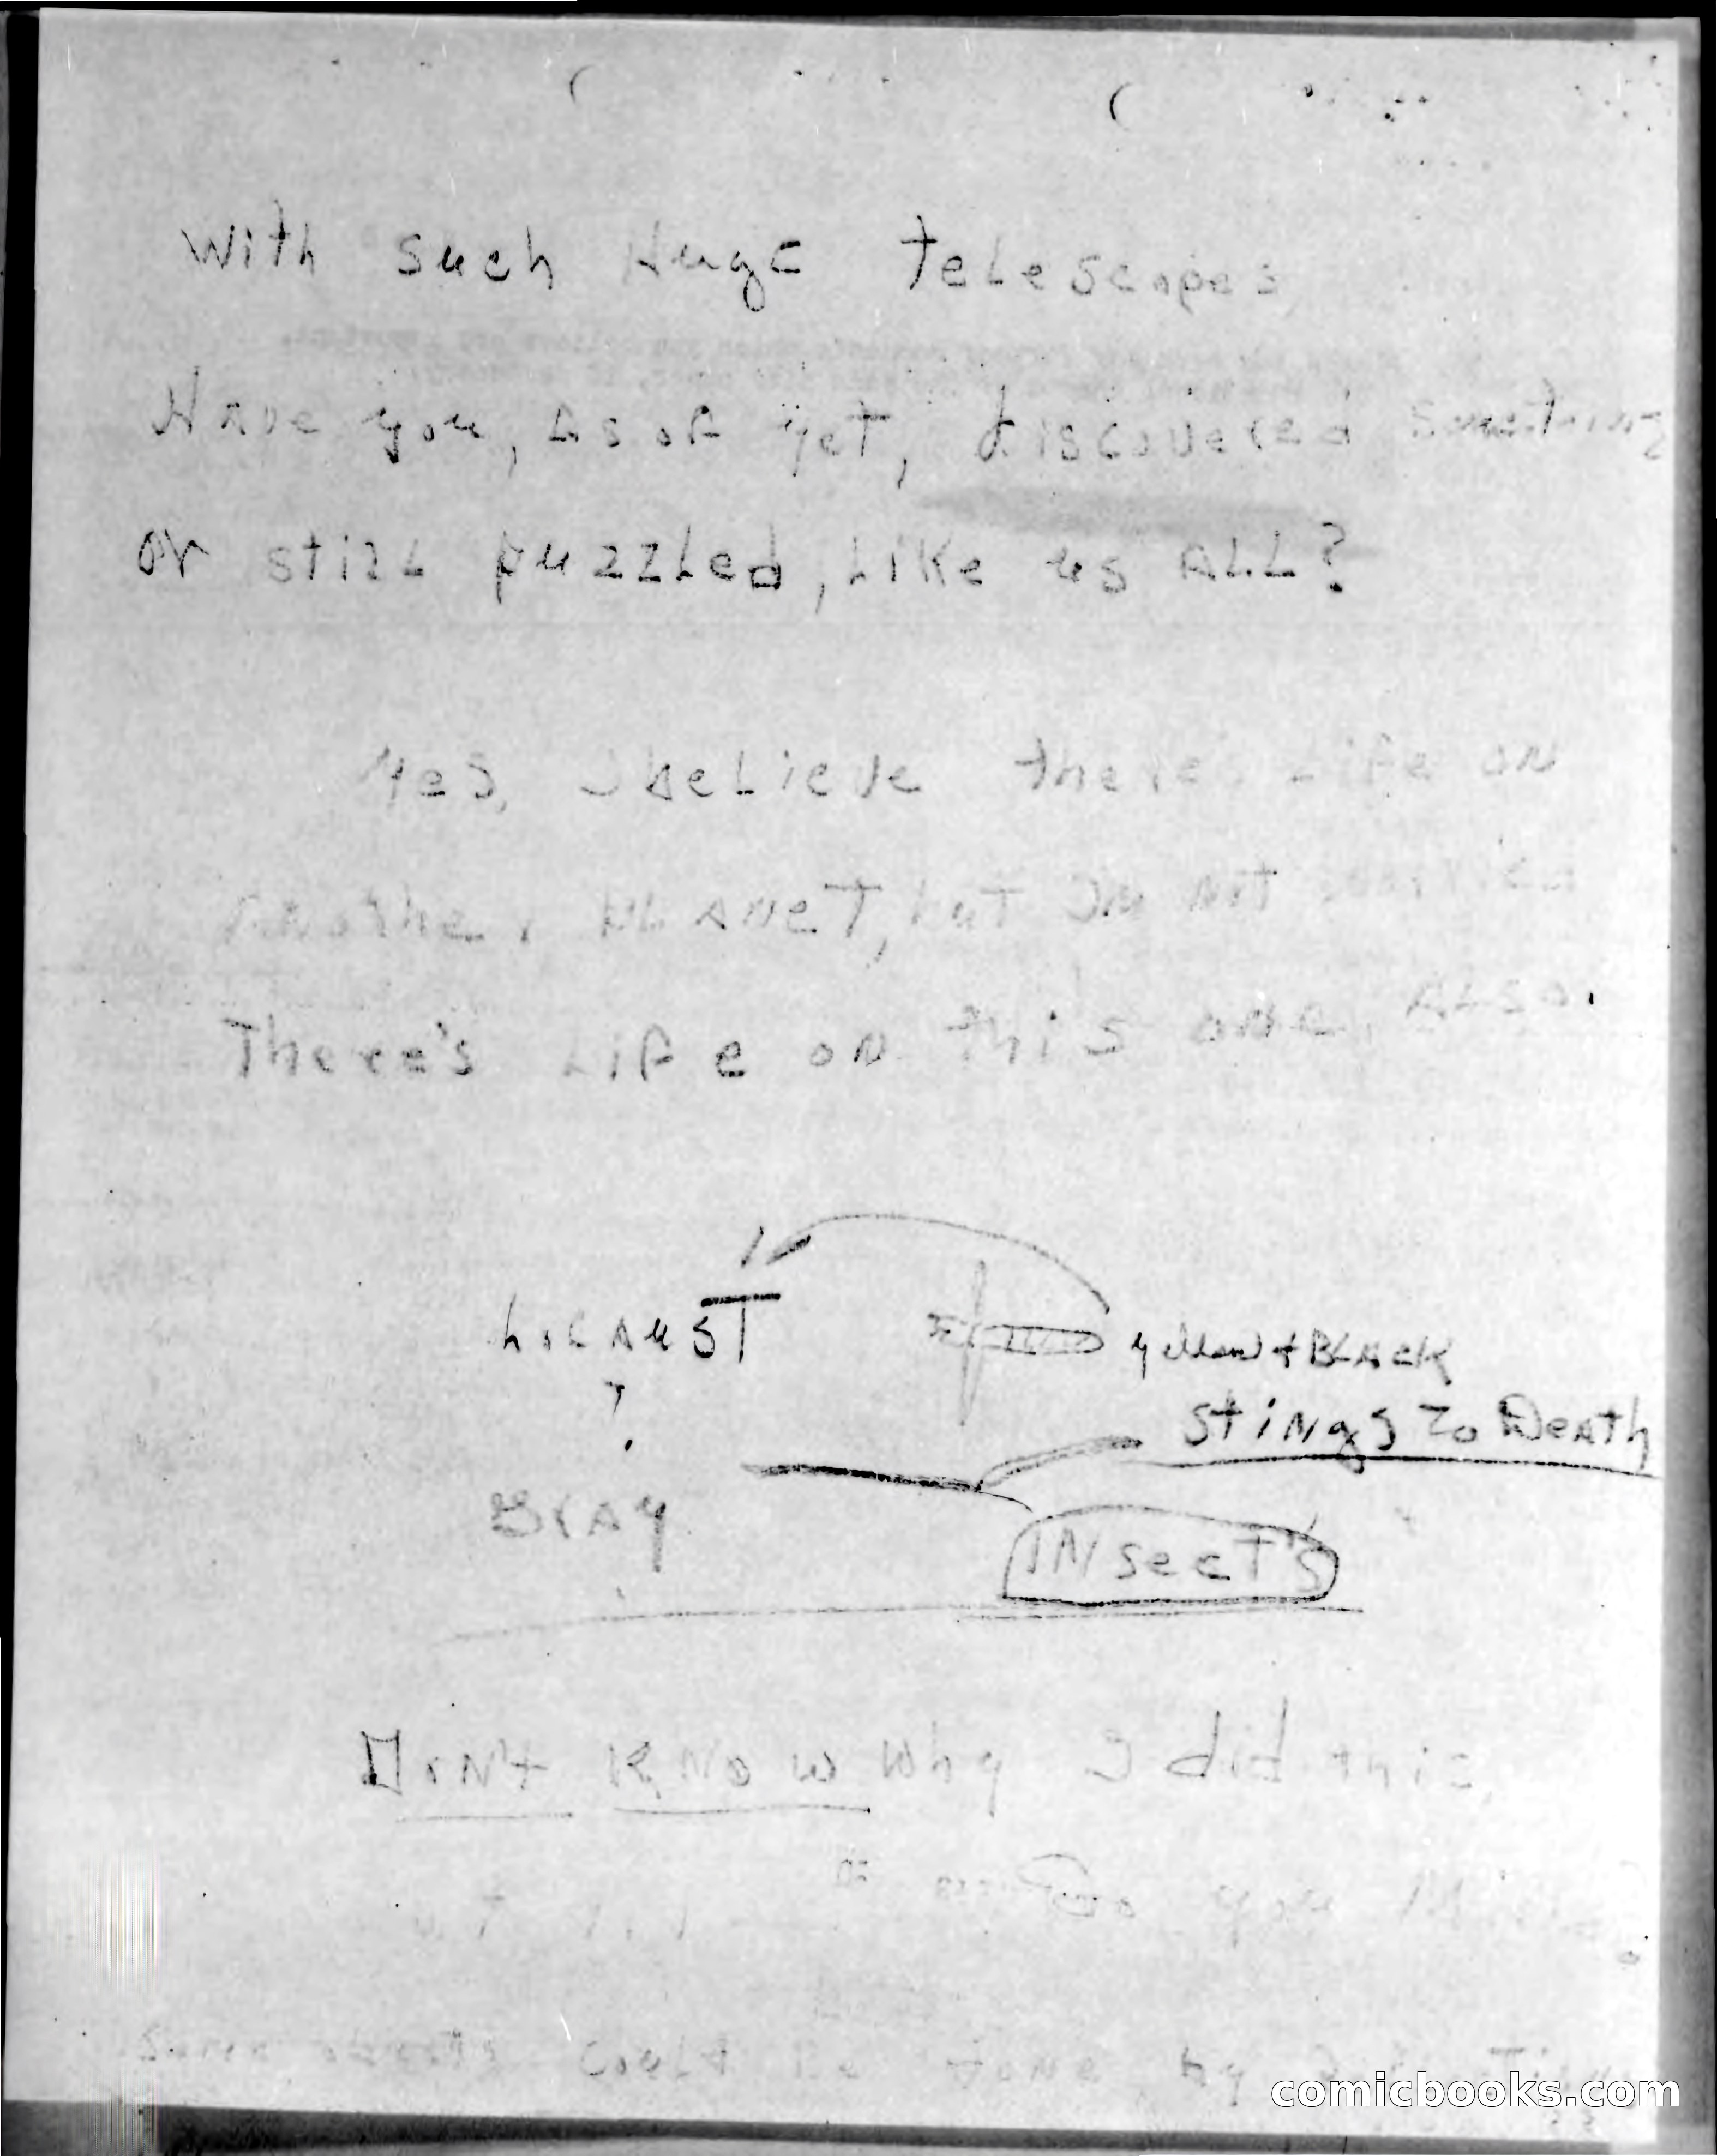 With such Huge telescopes,
Have you, As of yet, discovered something
or still puzzled, Like us ALL?
Yes, I beLieve there's Life on
Another PLANeT, but I'm Not
There's Life on This one, ALSO.
LocAusT
yellow + BLAck
STiNgs To DeAth
INsecT's
DoN't KNow Why I did this,
you
could be done by
comicbooks.com